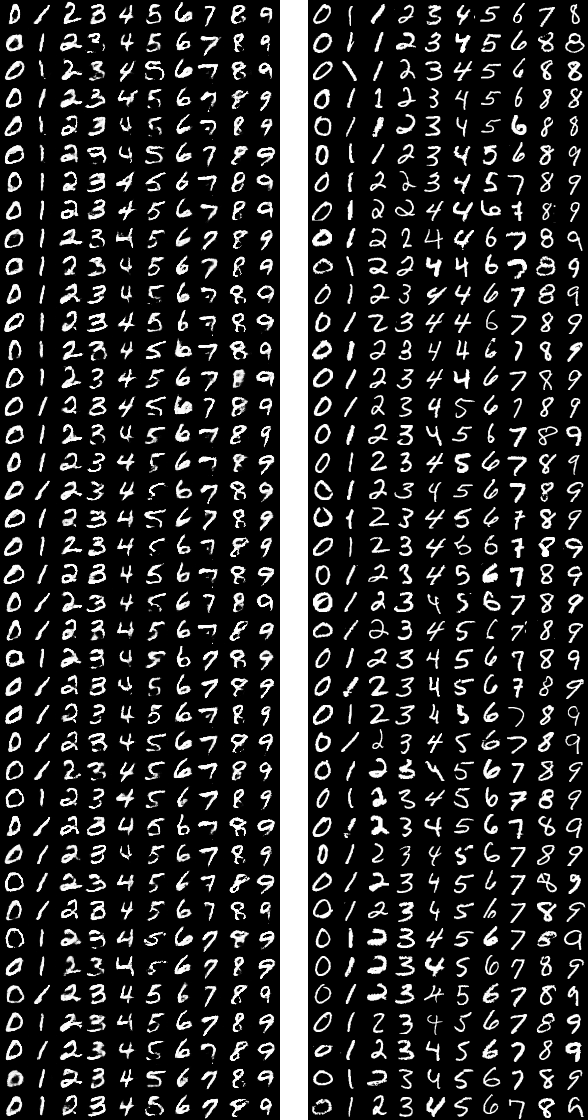 0 1 2 3 4 5 6 7 8 9 0 1 1 2 3 4 5 6 7 8
0 1 2 3 4 5 6 7 8 9 0 1 1 2 3 4 5 6 8 8
0 1 2 3 4 5 6 7 8 9 0 1 1 2 3 4 5 6 8 8
0 1 2 3 4 5 6 7 8 9 0 1 1 2 3 4 5 6 8 8
0 1 2 3 4 5 6 7 8 9 0 1 1 2 3 4 5 6 8 8
0 1 2 3 4 5 6 7 8 9 0 1 1 2 3 4 5 6 8 9
0 1 2 3 4 5 6 7 8 9 0 1 2 2 3 4 5 7 8 9
0 1 2 3 4 5 6 7 8 9 0 1 2 2 4 4 6 7 8 9
0 1 2 3 4 5 6 7 8 9 0 1 2 2 4 4 6 7 8 9
0 1 2 3 4 5 6 7 8 9 0 1 2 2 4 4 6 7 8 9
0 1 2 3 4 5 6 7 8 9 0 1 2 3 4 4 6 7 8 9
0 1 2 3 4 5 6 7 8 9 0 1 2 3 4 4 6 7 8 9
0 1 2 3 4 5 6 7 8 9 0 1 2 3 4 4 6 7 8 9
0 1 2 3 4 5 6 7 8 9 0 1 2 3 4 4 6 7 8 9
0 1 2 3 4 5 6 7 8 9 0 1 2 3 4 5 6 7 8 9
0 1 2 3 4 5 6 7 8 9 0 1 2 3 4 5 6 7 8 9
0 1 2 3 4 5 6 7 8 9 0 1 2 3 4 5 6 7 8 9
0 1 2 3 4 5 6 7 8 9 0 1 2 3 4 5 6 7 8 9
0 1 2 3 4 5 6 7 8 9 0 1 2 3 4 5 6 7 8 9
0 1 2 3 4 5 6 7 8 9 0 1 2 3 4 5 6 7 8 9
0 1 2 3 4 5 6 7 8 9 0 1 2 3 4 5 6 7 8 9
0 1 2 3 4 5 6 7 8 9 0 1 2 3 4 5 6 7 8 9
0 1 2 3 4 5 6 7 8 9 0 1 2 3 4 5 6 7 8 9
0 1 2 3 4 5 6 7 8 9 0 1 2 3 4 5 6 7 8 9
0 1 2 3 4 5 6 7 8 9 0 1 2 3 4 5 6 7 8 9
0 1 2 3 4 5 6 7 8 9 0 1 2 3 4 5 6 7 8 9
0 1 2 3 4 5 6 7 8 9 0 1 2 3 4 5 6 7 8 9
0 1 2 3 4 5 6 7 8 9 0 1 2 3 4 5 6 7 8 9
0 1 2 3 4 5 6 7 8 9 0 1 2 3 4 5 6 7 8 9
0 1 2 3 4 5 6 7 8 9 0 1 2 3 4 5 6 7 8 9
0 1 2 3 4 5 6 7 8 9 0 1 2 3 4 5 6 7 8 9
0 1 2 3 4 5 6 7 8 9 0 1 2 3 4 5 6 7 8 9
0 1 2 3 4 5 6 7 8 9 0 1 2 3 4 5 6 7 8 9
0 1 2 3 4 5 6 7 8 9 0 1 2 3 4 5 6 7 8 9
0 1 2 3 4 5 6 7 8 9 0 1 2 3 4 5 6 7 8 9
0 1 2 3 4 5 6 7 8 9 0 1 2 3 4 5 6 7 8 9
0 1 2 3 4 5 6 7 8 9 0 1 2 3 4 5 6 7 8 9
0 1 2 3 4 5 6 7 8 9 0 1 2 3 4 5 6 7 8 9
0 1 2 3 4 5 6 7 8 9 0 1 2 3 4 5 6 7 8 9
0 1 2 3 4 5 6 7 8 9 0 1 2 3 4 5 6 7 8